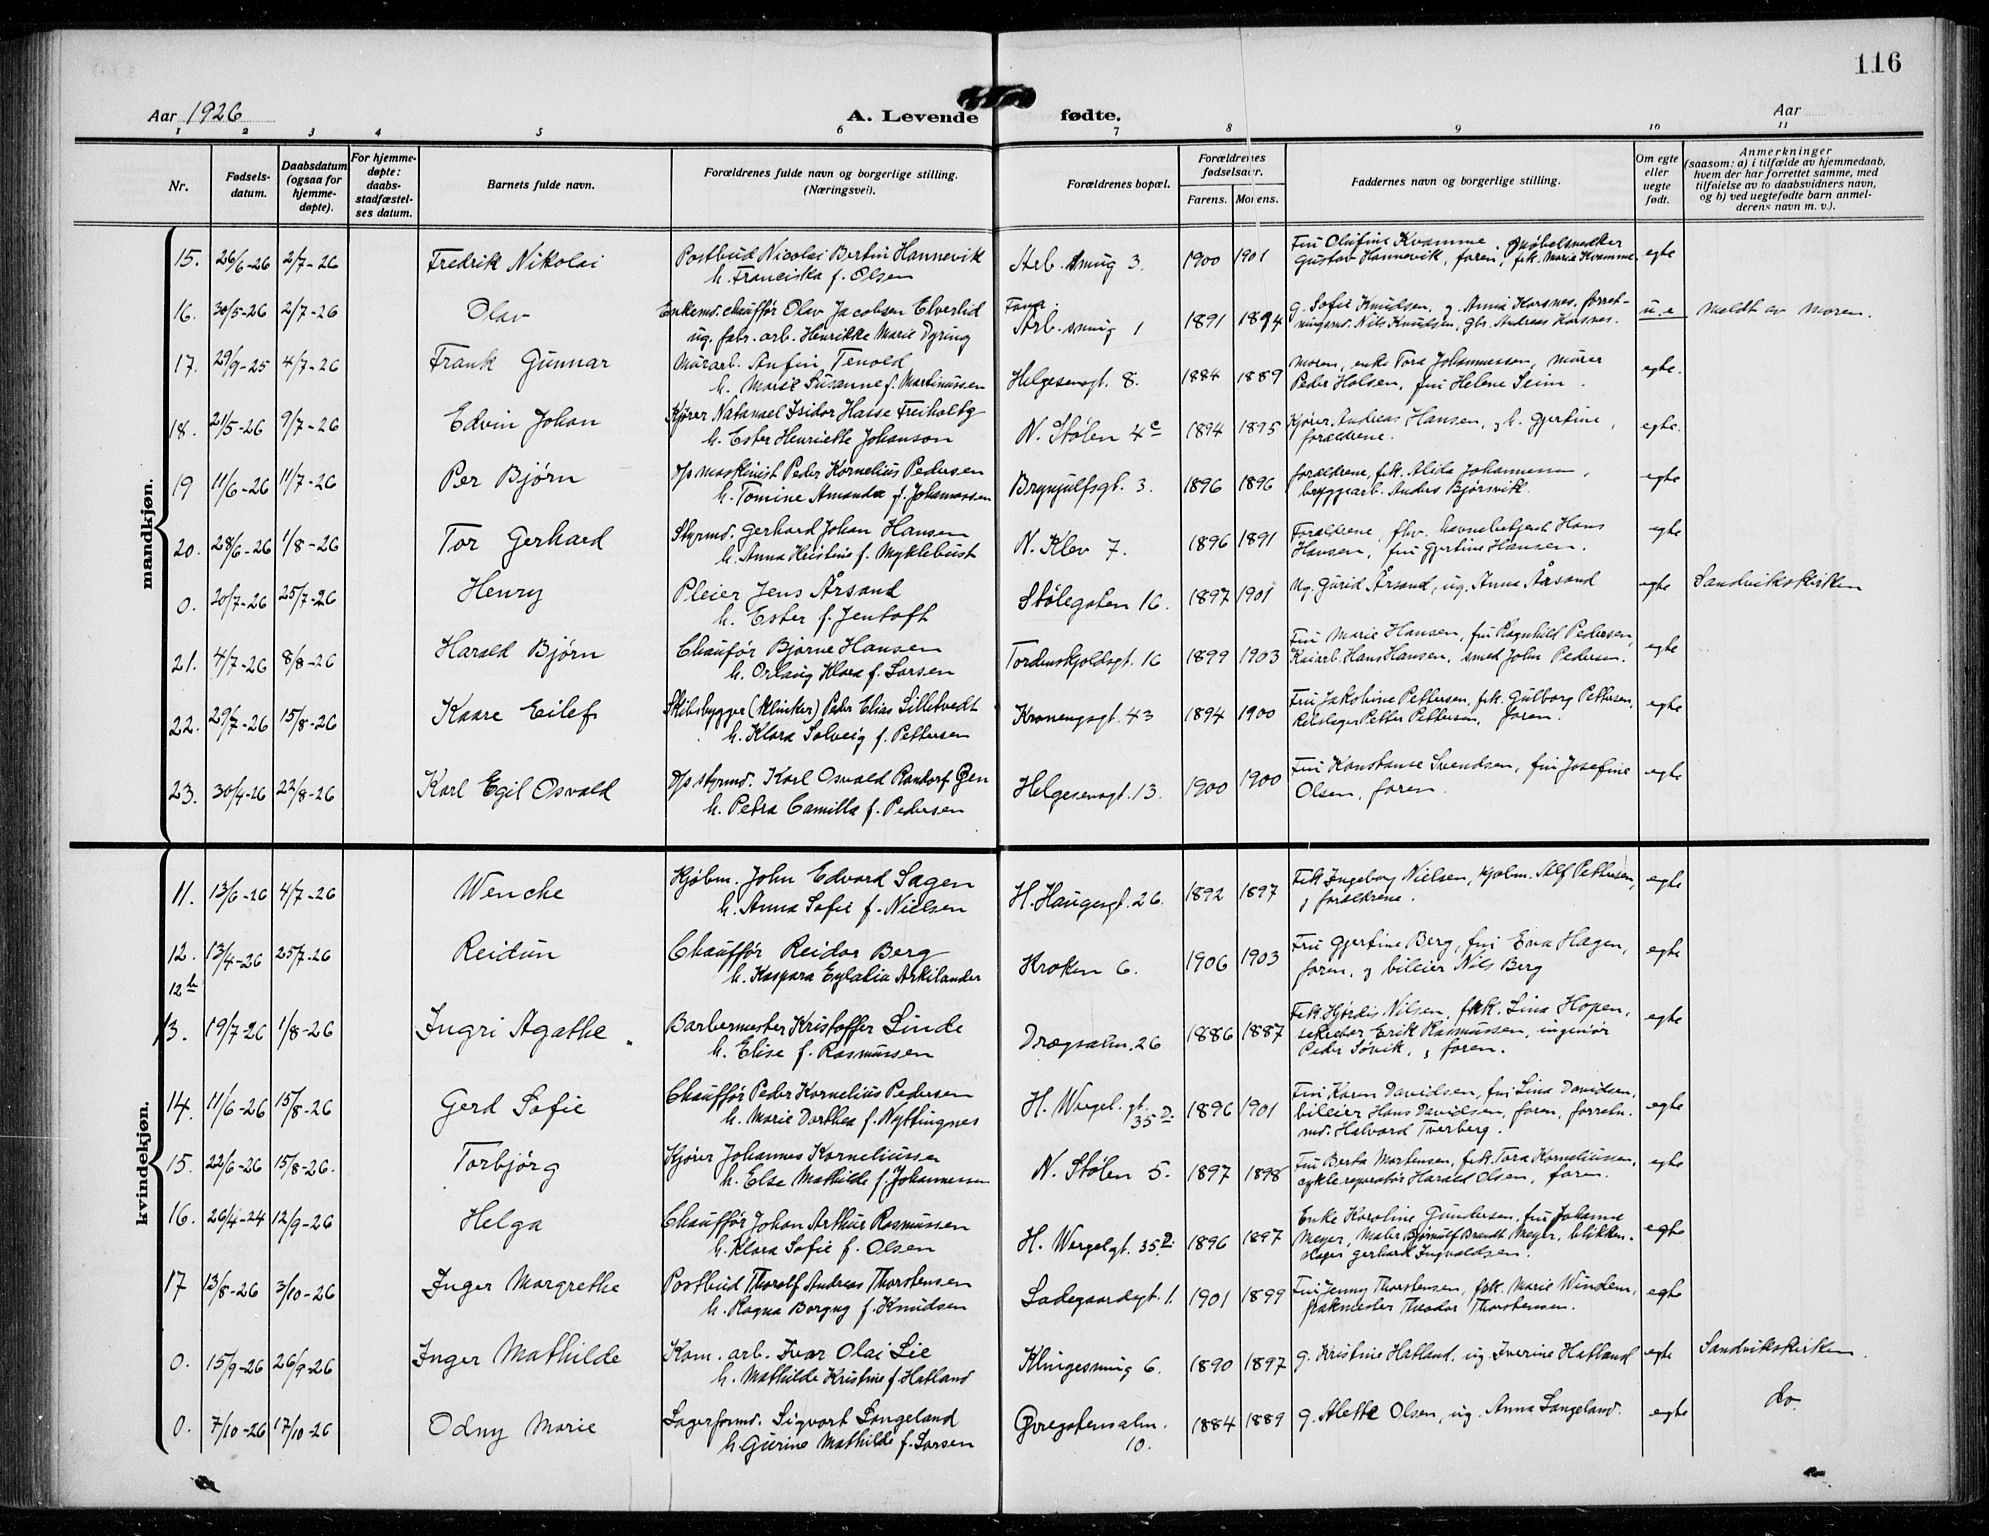 116
Aar 1926
A. Levende fødte.
Aar
1 2 3 4 5 6 7 8 9 10 11
Nr.
Fødsels-
datum.
Daabsdatum
(ogsaa for
hjemme-
døpte).
For hjemme-
døpte:
daabs-
stadfæstel-
ses datum.
Barnets fulde navn.
Forældrenes fulde navn og borgerlige stilling.
(Næringsvei).
Forældrenes bopæl.
Forældrenes
fødselsaar.
Farens. Morens.
Faddernes navn og borgerlige stilling.
Om egte
eller
uegte
født.
Anmerkninger
(saasom: a) i tilfælde av hjemmedaab,
hvem der har forrettet samme, med
tilføielse av to daabsvidners navn,
og b) ved uegtefødte barn anmel-
derens navn m. v.).
mandkjøn.
15. 26/6-26 2/7-26 Fredrik Nikolai Postbud Nicolai Bertin Hannevik Arb. smug 3. 1900 1901 Fru Olufine Kvamme, møbelsnedker egte
h. Franciska f. Olsen Gustav Hannevik, faren, frk. Marie Kvamme
16. 30/5-26 2/7-26 Olav Enkemd. chauffør Olav Jacobsen Elverlid Arb. smug 1 1891 1894 g. Sofie Knudsen, g. Anna Korsnes, forret- u. e Meldt av moren.
ug. fabr. arb. Henrikke Marie Dyring ningsmd. Nils Knudsen, gbr. Andreas Korsnes.
17. 29/9-25 4/7-26 Frank Gunnar Murarb. Anfin Tenold Helgesensgt. 8. 1884 1889 Moren, enke Tora Johannessen, murer egte.
h. Marie Susanne f. Martinussen Peder Holsen, fru Helene Seim.
18. 21/5-26 9/7-26 Edvin Johan Kjører Natanael Isidor Hasse Freiholtz N. Stølen 4c 1894 1895 Kjører Andreas Hansen, g h. Gjertine, egte.
h. Ester Henriette Johanson forældrene.
19 11/6-26 11/7-26 Per Bjørn D/s maskinist Peder Kornelius Pedersen Brynjulfsgt. 3. 1896 1896 forældrene, frk. Alida Johannessen, egte
h. Tomine Amanda f. Johannessen bryggearb. Anders Bjørsvik.
20. 28/6-26 1/8-26 Tor Gerhard Styrmd. Gerhard Johan Hansen N. Klev 7. 1896 1891 Forældrene, fhv. havnebetjent Hans egte
h. Anna Kristine f. Myklebust Hansen, fru Gjertine Hansen.
0. 20/7-26 25/7-26 Henry Pleier Jens Årsand Stølegaten 16. 1897 1901 Ug. Gurid Årsand, ug. Anna Årsand egte Sandvikskirken
h. Ester f. Jentoft
21. 4/7-26 8/8-26 Harald Bjørn Chaufør Bjarne Hansen Tordenskjoldsgt. 16 1899 1903 Fru Marie Hansen, fru Ragnhild Pedersen, egte
h. Orlaug Klara f. Larsen Kaiarb. Hans Hansen, smed John Pedersen.
22. 29/7-26 15/8-26 Kaare Eilef Skibsbygger (klinker) Peder Elias Silletvedt Kronengsgt. 43 1894 1900 Fru Jakobine Pettersen, frk. Gulborg Pettersen, egte
h. Klara Solveig f. Pettersen Reipslager Petter Pettersen, faren.
23. 30/4-26 22/8-26 Karl Egil Osvald D/s styrmd. Karl Osvald Randorf Gren Helgesensgt. 13. 1900 1900 Fru Konstanse Svendsen, fru Josefine egte
h. Petra Camilla f. Pedersen Olsen, faren.
kvindekjøn.
11. 13/6-26 4/7-26 Wenche Kjøbm. John Edvard Sagen H. Haugesgt. 26. 1892 1897 Frk Ingeborg Nielsen, kjøbm. Alf Pettersen, egte
h. Anna Sofie f. Nielsen g forældrene.
12. 13/4-26 25/7-26 Reidun Chauffør Reidar Berg Kroken 6. 1906 1903 Fru Gjertine Berg, fru Eva Hagen, egte
12b h. Kaspara Eylalia Arkilander faren, g bileier Nils Berg
13. 19/7-26 1/8-26 Ingri Agathe Barbermester Kristoffer Linde Drægsalm. 26 1886 1887 Frk. Hjørdis Nilsen, frk. Lina Hopen, egte
h. Elise f. Rasmussen sekretær Erik Rasmussen, ingeniør
Peder Søvik, g faren.
14. 11/6-26 15/8-26 Gerd Sofie Chauffør Peder Kornelius Pedersen H. Wergel. gt. 35D 1896 1901 Fru Karen Davidsen, fru Lina Davidsen, egte
h. Marie Dorthea f. Nyttingnes bileier Hans Davidsen, faren, forretn.
md. Halvard Tverberg.
15. 22/6-26 15/8-26. Torbjørg Kjører Johannes Korneliussen N. Stølen 5. 1897 1898 Fru Berta Mortensen, frk. Tora Korneliussen, egte
h. Else Mathilde f. Johannessen cyklereparatør Harald Olsen, faren.
16. 26/4-24 12/9-26 Helga Chauffør Johan Arthur Rasmussen H. Wergelgt. 35D. 1896 1897 Enke Karoline Gundersen, fru Johanne egte
h. Klara Sofie f. Olsen Meyer, Maler Bjørnulf Brandt Meyer, blikken-
slager Gerhard Ingvaldsen.
17 13/8-26 3/10-26 Inger Margrethe Postbud Thoralf Andreas Thorstensen Ladegaardsgt. 1. 1901 1899 Fru Jenny Thorstensen, frk. Marie Windem, egte
h. Ragna Borgny f. Knudsen pakmester Theodor Thorstensen.
0. 15/9-26 26/9-26 Inger Mathilde Kom. arb. Ivar Olai Lie Klingesmug 6. 1890 1897 g. Kristine Hatland, ug Iverine Hatland egte Sandvikskirken.
h. Mathilde Kristine f. Hatland
0. 7/10-26 17/10-26 Odny Marie Lagerformd. Sigvart Langeland Øvregatensalm. 10. 1884 1889 g. Alette Olsen, ug. Anna Langeland. egte do.
h. Gurine Mathilde f. Larsen